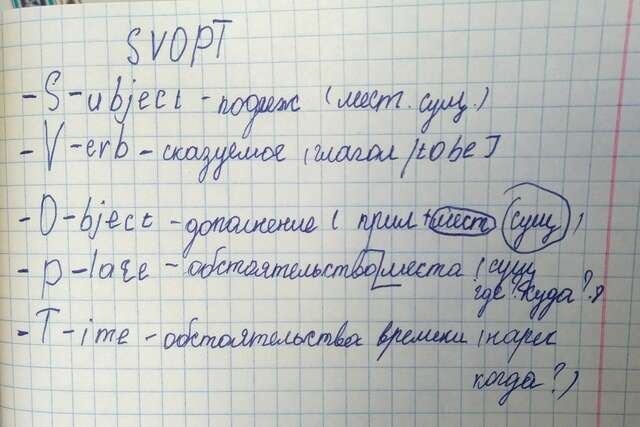 SVOPT
- S-ubject - подлеж (мест. сущ.)
- V-erb - сказуемое (глагол/tobe]
- O-bject - дополнение ( прил + мест сущ )
- P-laqe - обстоятельство места (сущ
где? куда?)
- T-ime - обстоятельства времени (нареч
когда?)